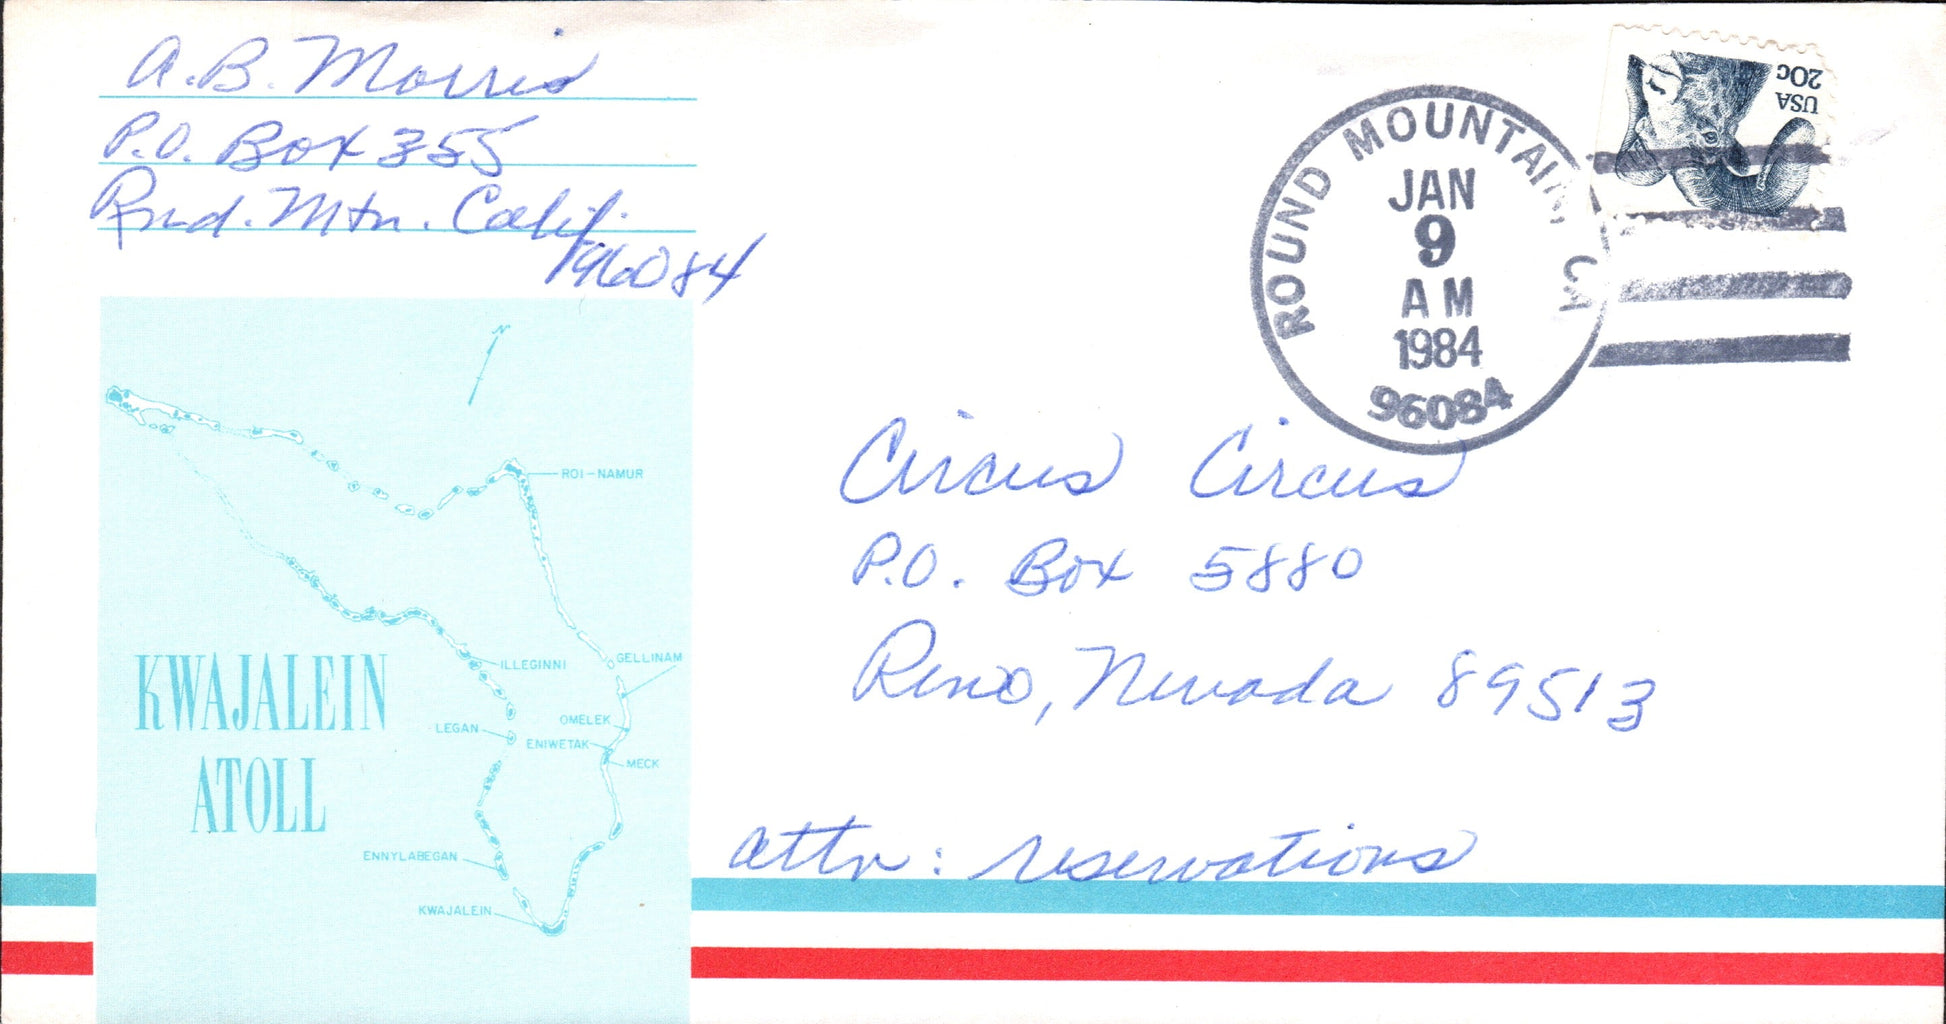 A. B. Morris
P.O. Box 355
Rnd. Mtn. Calif.
96084
USA
20c
ROUND MOUNTAIN, CA
JAN
9
AM
1984
96084
Circus Circus
P.O. Box 5880
Reno, Nevada 89513
attn: reservations
N
ROI-NAMUR
ILLEGINNI
GELLINAM
LEGAN
OMELEK
ENIWETAK
MECK
ENNYLABEGAN
KWAJALEIN
KWAJALEIN
ATOLL